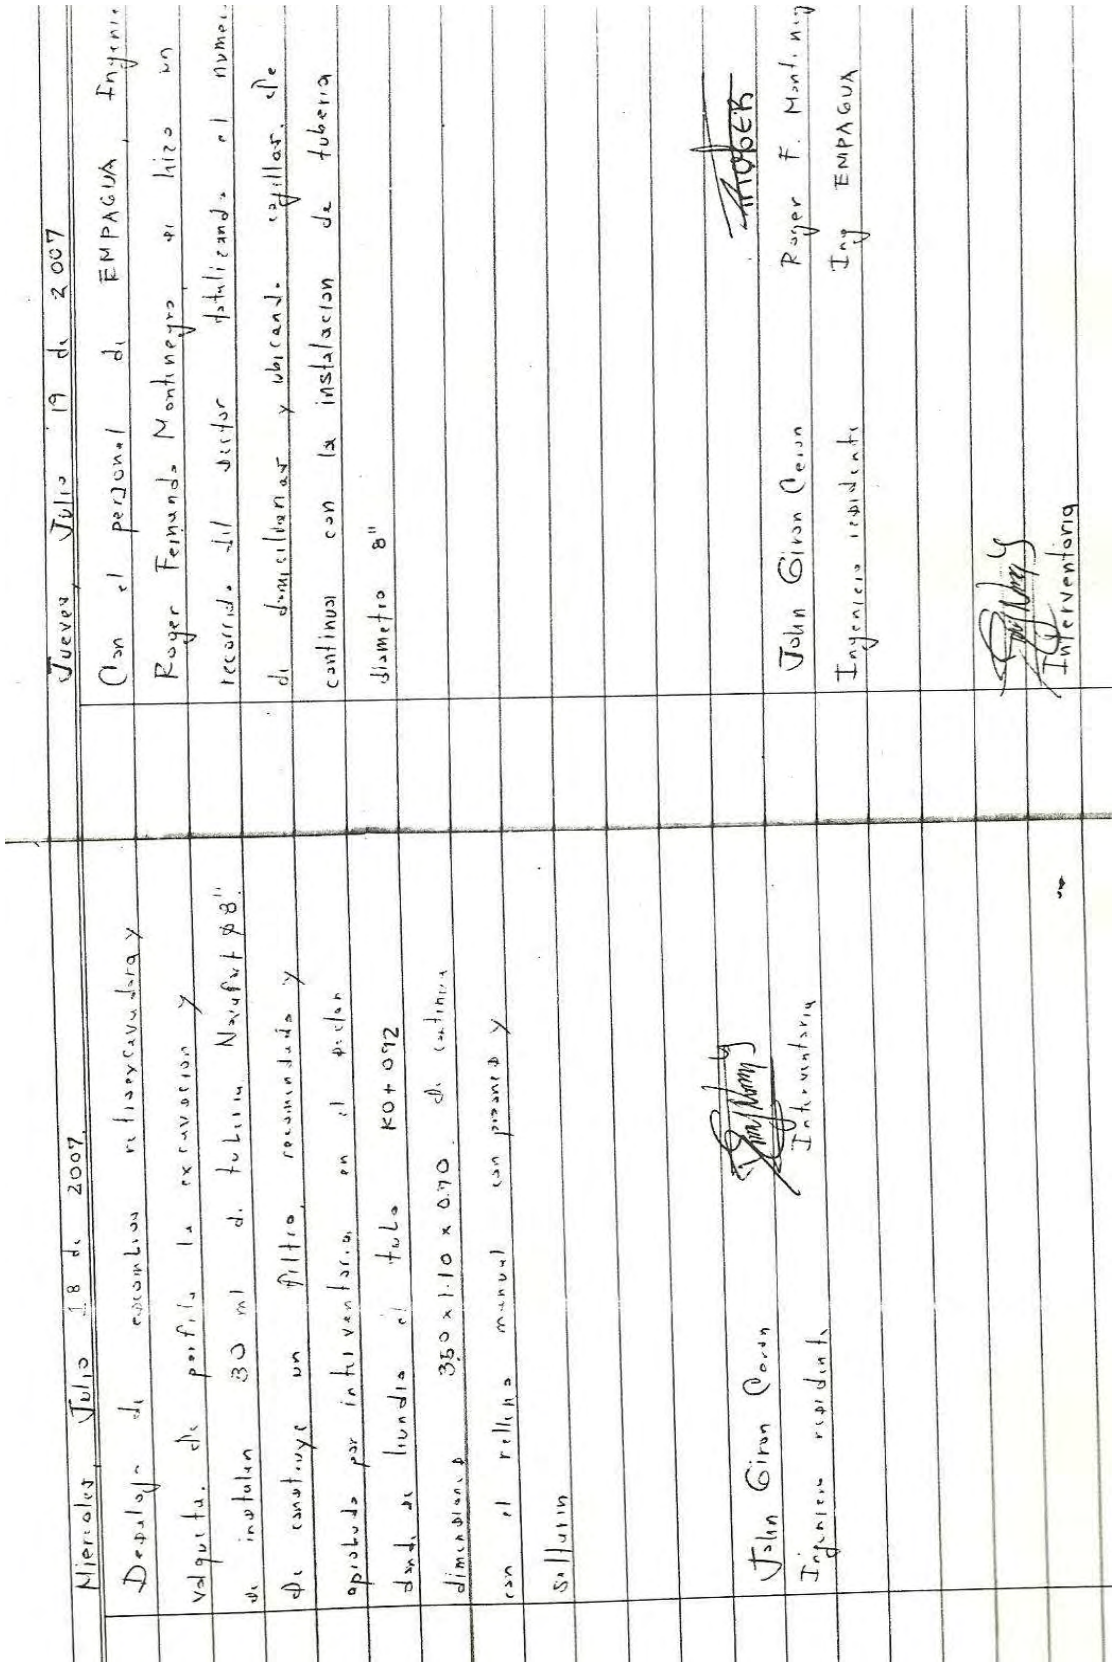 Miercoles, Julio 18 de 2007
Desalojo de escombros retroexcavadora y
volqueta. Se perfila la excavacion y
se instalan 30 ml de tuberia Novafort ø 8".
Se construye un filtro, recomendado y
aprobado por interventoria, en el sector
donde se hundio el tubo K0+092
dimensiones 350 x 1.10 x 0.70. Se continua
con el relleno manual con pisones y
saltarin
John Giron Ceron
Ingeniero residente
Interventoria
Jueves, Julio 19 de 2007
Con el personal de EMPAGUA, Ingenie
Roger Fernando Montenegro, se hizo un
recorrido del sector totalizando el numer
de domiciliarias y ubicando cajillas. Se
continua con la instalacion de tuberia
diametro 8"
John Giron Ceron
Ingeniero residente
Roger F. Monteneg
Ing EMPAGUA
Interventoria